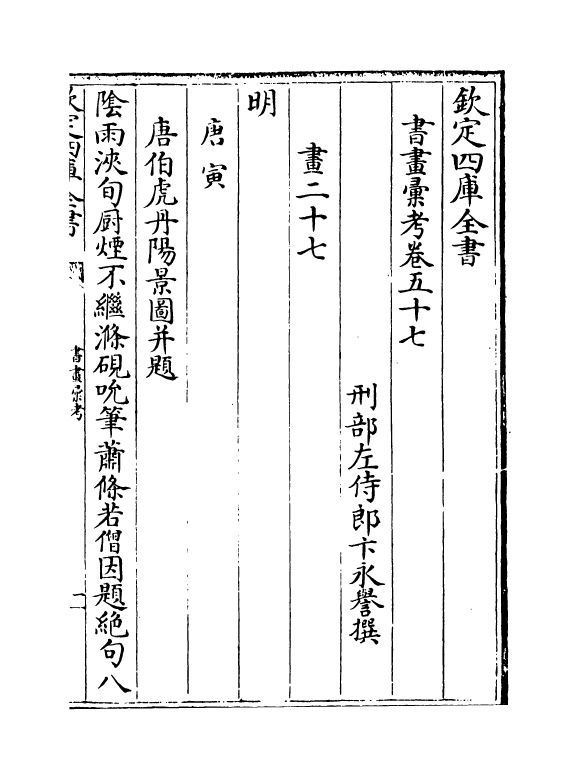 欽定四庫全書
書畫彙考卷五十七
刑部左侍郎卞永譽撰
畫二十七
明
唐寅
唐伯虎丹陽景圖并題
陰雨浹旬厨煙不繼滌硯吮筆蕭條若僧因題絶句八
欽定四庫全書
書畫彙考
一